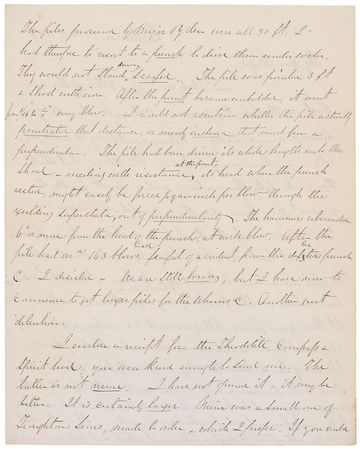 The piles procured by Major Ogden were all 30 ft. I
had therefore to resort to a punch to drive them under water.
They would not stand driving, scarfed. The pile was pointed 3 ft
& shod with iron. After the point became embedded, it went
from 1/2 to 2 in any blow. I could not ascertain whether the pile actually
penetrated that distance, or merely inclined that much from a
perpendicular. The pile had been driven its whole length into the
Shoal - meeting with resistance at the point, its head when the punch
rested, might easily be forced from each blow through the
yielding substrata, out of perpendicularity. The hammer rebounded
6 in or more from the head of the punch, at each blow. After the
pile had 143 blows, fearful of accident from the
I desisted - We are still boring, but I have now to
commence to get longer piles for the Wharves &c. Another great
detention.
I enclose a receipt for the Theodolite, Compass &
Spirit level, you were kind enough to send me. The
latter is not mine. I have not opened it - it may be
better. It is certainly larger. Mine was a small one of
Troughton & Simms, made to order, which I prefer. If you could